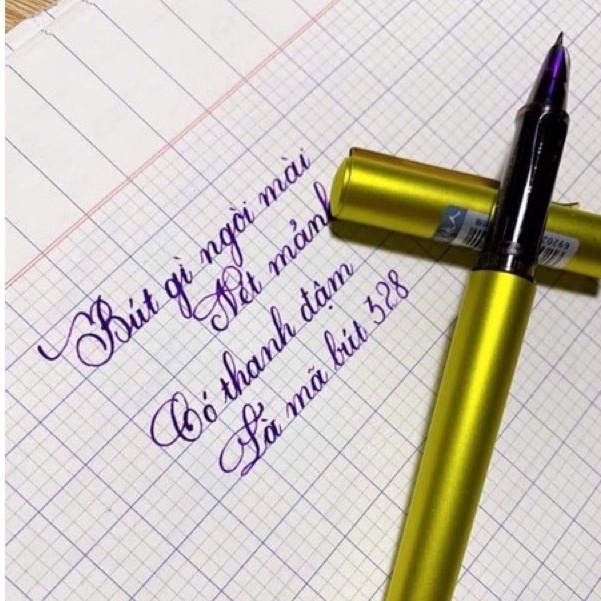 Bút gì ngòi mài
Nét mảnh
Có thanh đậm
Là mã bút 328